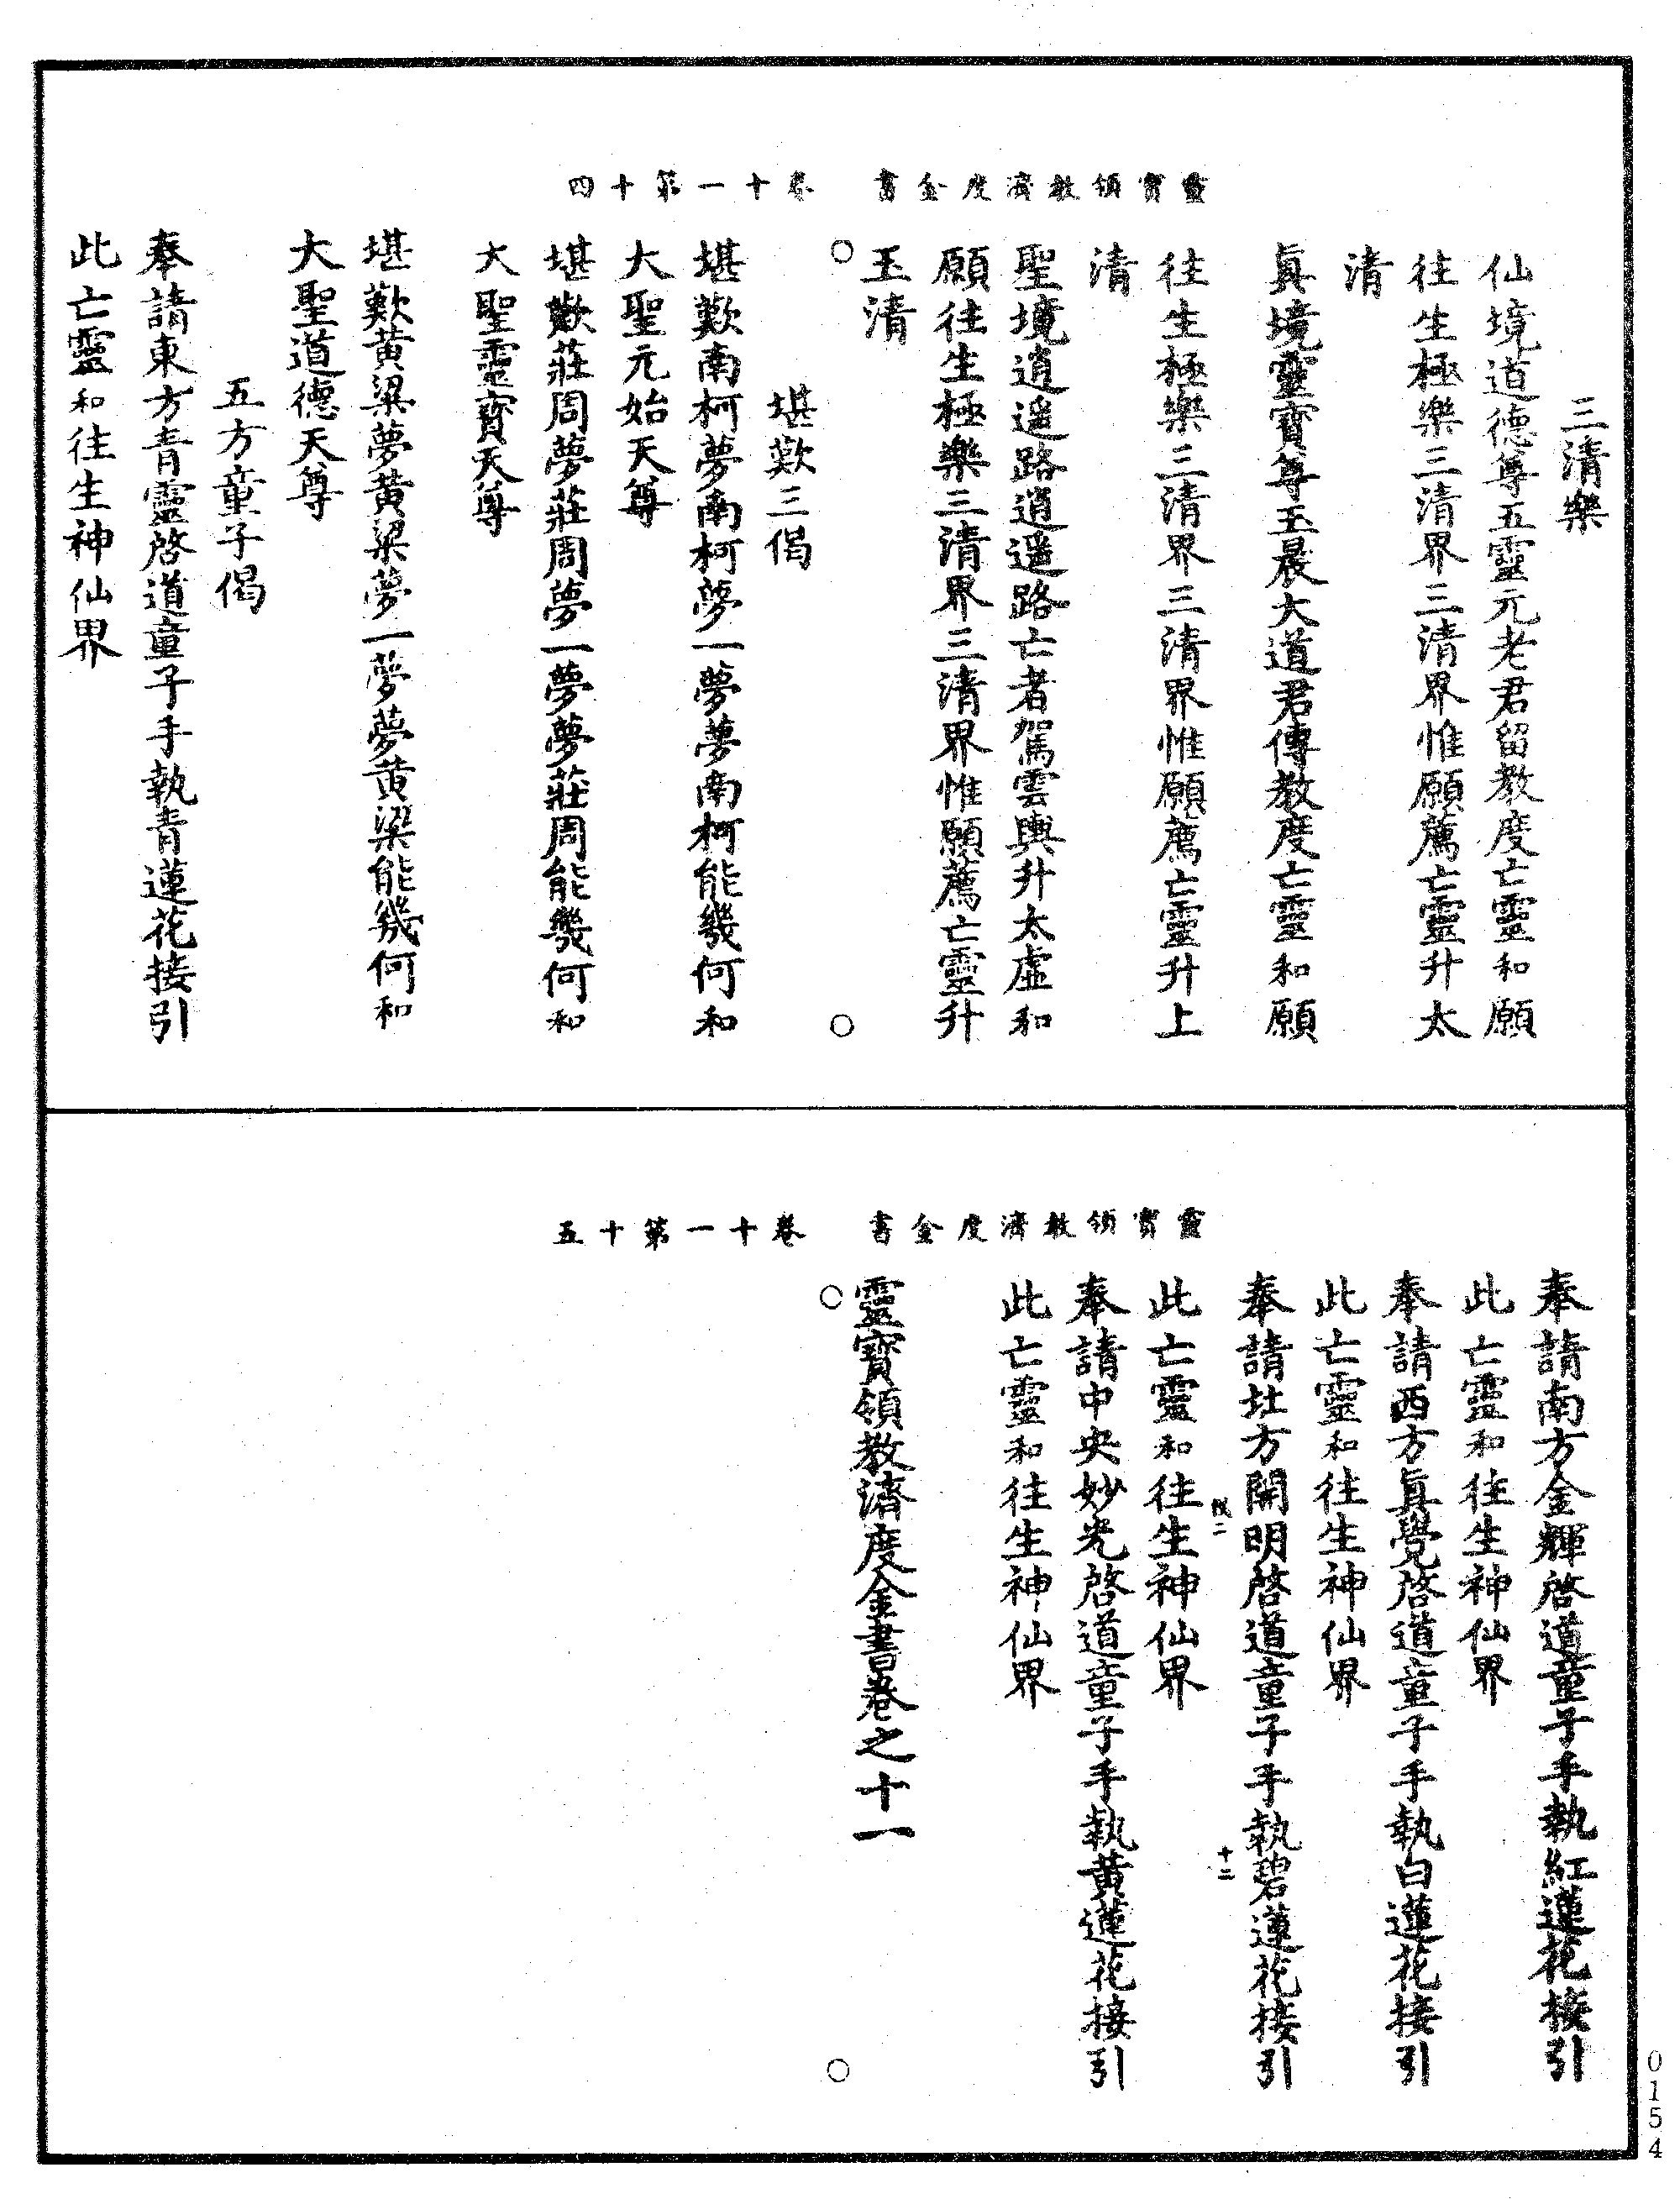 靈寶領教濟度金書　卷十一第十四
三清樂
仙境道德尊五靈元老君留教度亡靈和願
往生極樂三清界三清界惟願薦亡靈升太
清
眞境靈寶尊玉晨大道君傳教度亡靈和願
往生極樂三清界三清界惟願薦亡靈升上
清
聖境逍遥路逍遥路亡者駕雲輿升太虛和
願往生極樂三清界三清界惟願薦亡靈升
玉清
堪歎三偈
堪歎南柯夢南柯夢一夢夢南柯能幾何和
大聖元始天尊
堪歎莊周夢莊周夢一夢夢莊周能幾何和
大聖靈寳天尊
堪歎黃粱夢黃粱夢一夢夢黃粱能幾何和
大聖道德天尊
五方童子偈
奉請東方青靈啓道童子手執青蓮花接引
此亡靈和往生神仙界
靈寶領教濟度金書　卷十一第十五
奉請南方金輝啓道童子手執紅蓮花接引
此亡靈和往生神仙界
奉請西方眞覺啓道童子手執白蓮花接引
此亡靈和往生神仙界
奉請北方開明啓道童子手執碧蓮花接引
二
十二
此亡靈和往生神仙界
奉請中央妙光啓道童子手執黃蓮花接引
此亡靈和往生神仙界
靈寶領教濟度金書卷之十一
0154